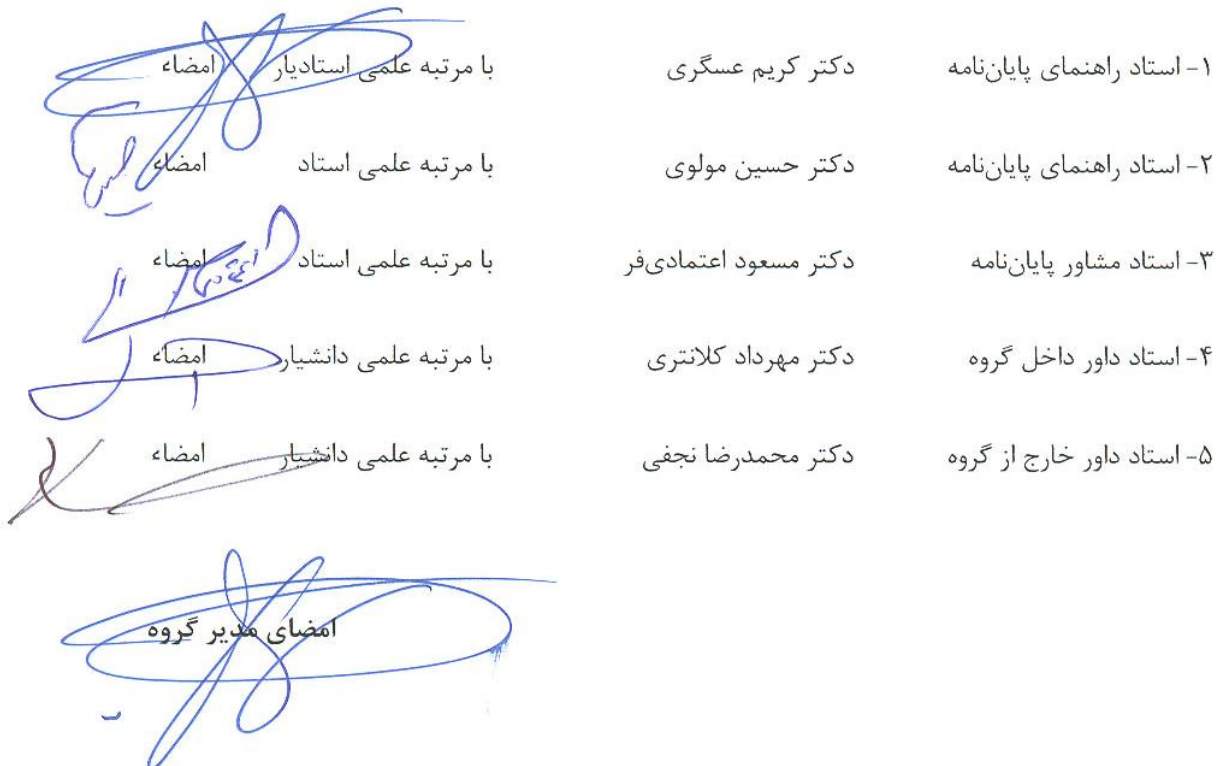 ۱- استاد راهنمای پایان‌نامه دکتر کریم عسگری با مرتبه علمی استادیار امضاء
۲- استاد راهنمای پایان‌نامه دکتر حسین مولوی با مرتبه علمی استاد امضاء
۳- استاد مشاور پایان‌نامه دکتر مسعود اعتمادی‌فر با مرتبه علمی استاد امضاء
۴- استاد داور داخل گروه دکتر مهرداد کلانتری با مرتبه علمی دانشیار امضاء
۵- استاد داور خارج از گروه دکتر محمدرضا نجفی با مرتبه علمی دانشیار امضاء
امضای مدیر گروه